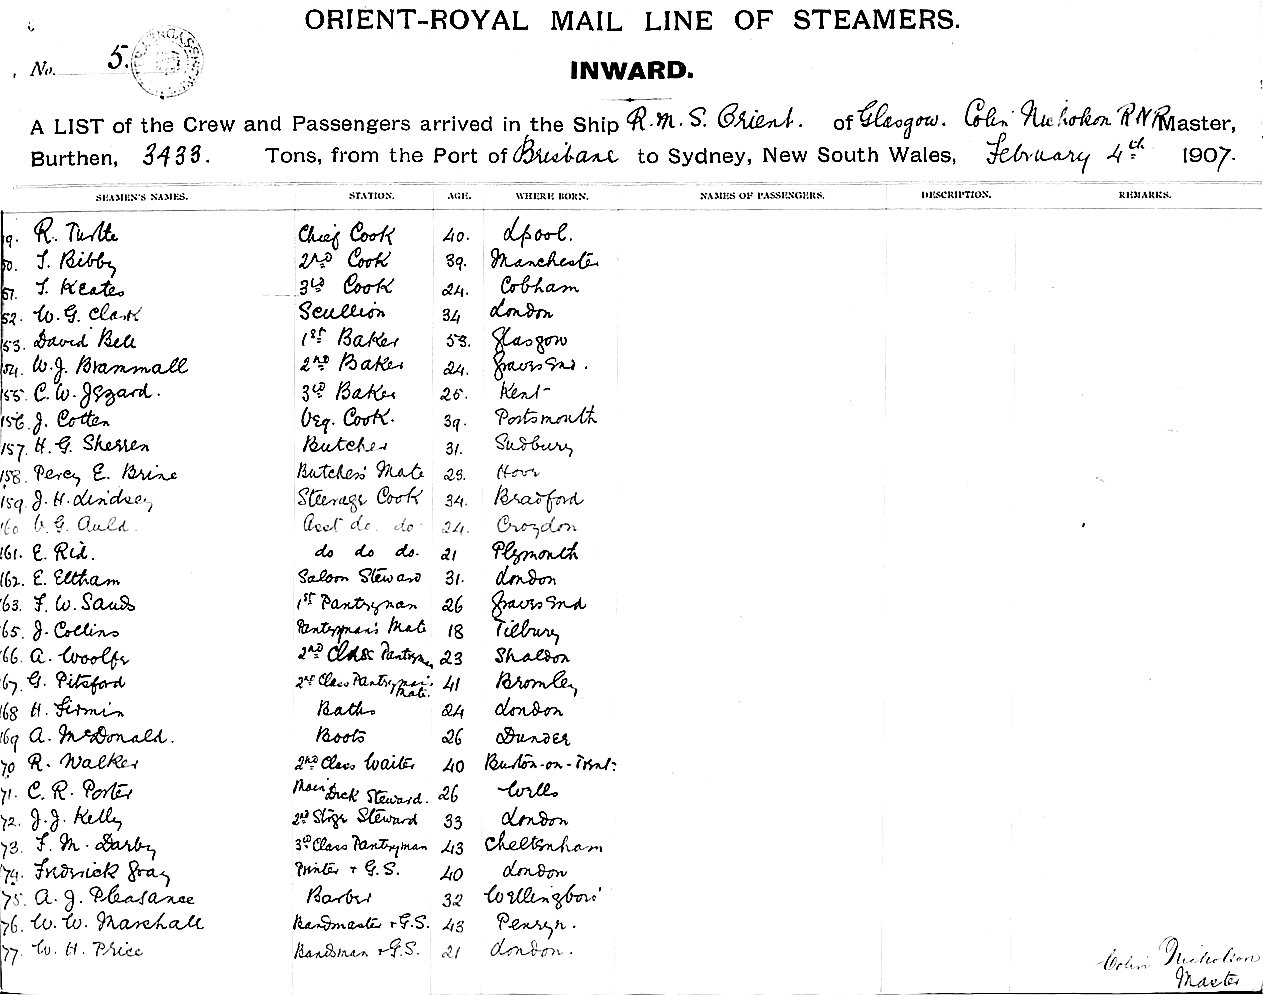 ORIENT-ROYAL MAIL LINE OF STEAMERS.
No. 5.
INWARD.
A LIST of the Crew and Passengers arrived in the Ship R.M.S. Orient. of Glasgow. Colin Nicholson R N R Master,
Burthen, 3433. Tons, from the Port of Brisbane to Sydney, New South Wales, February 4th 1907.
SEAMEN'S NAMES. STATION. AGE. WHERE BORN. NAMES OF PASSENGERS. DESCRIPTION. REMARKS.
9. R. Turtle Chief Cook 40. Lpool.
50. T. Bibby 2nd Cook 39. Manchester
51. T. Keates 3rd Cook 24. Cobham
52. W. G. Clark Scullion 34 London
53. David Bell 1st Baker 53. Glasgow
54. W. J. Brammall 2nd Baker 24. Gravesend.
155. C. W. Izzard. 3rd Baker 25. Kent
156. J. Cotten Veg. Cook. 39. Portsmouth
157. H. G. Sherren Butcher 31. Sudbury
158. Percy E. Brine Butchers Mate 23. Hove
159. J. H. Lindsey Steerage Cook 34. Bradford
160 G. Auld. Asst do. do. 24. Croydon
161. E. Rid. do do do. 21 Plymouth
162. E. Eltham Saloon Steward 31. London
63. F. W. Sands 1st Pantryman 26 Gravesend
65. J. Collins Pantryman's Mate 18 Tilbury
66. A. Woolfe 2nd Class Pantryn. 23 Shaldon
67. G. Pitsford 2nd Class Pantryman's Mate. 41 Bromley
168 H. Firmin Baths 24 London
169 A. McDonald. Boots 26 Dundee
70 R. Walker 2nd Class Waiter 40 Burton-on-Trent:
71. C. R. Porter Main Deck Steward. 26 Wells
72. J. J. Kelly 2nd Stge Steward 33 London
73. F. M. Darby 3rd Class Pantryman 43 Cheltenham
74. Fredrick Gray Printer + G.S. 40 London
75. A. J. Pleasance Barber 32 Wellingboro'
76. W. W. Marshall Bandmaster + G.S. 43 Penryn.
77. W. H. Price Bandsman + G.S. 21 London.
Colin Nicholson
Master